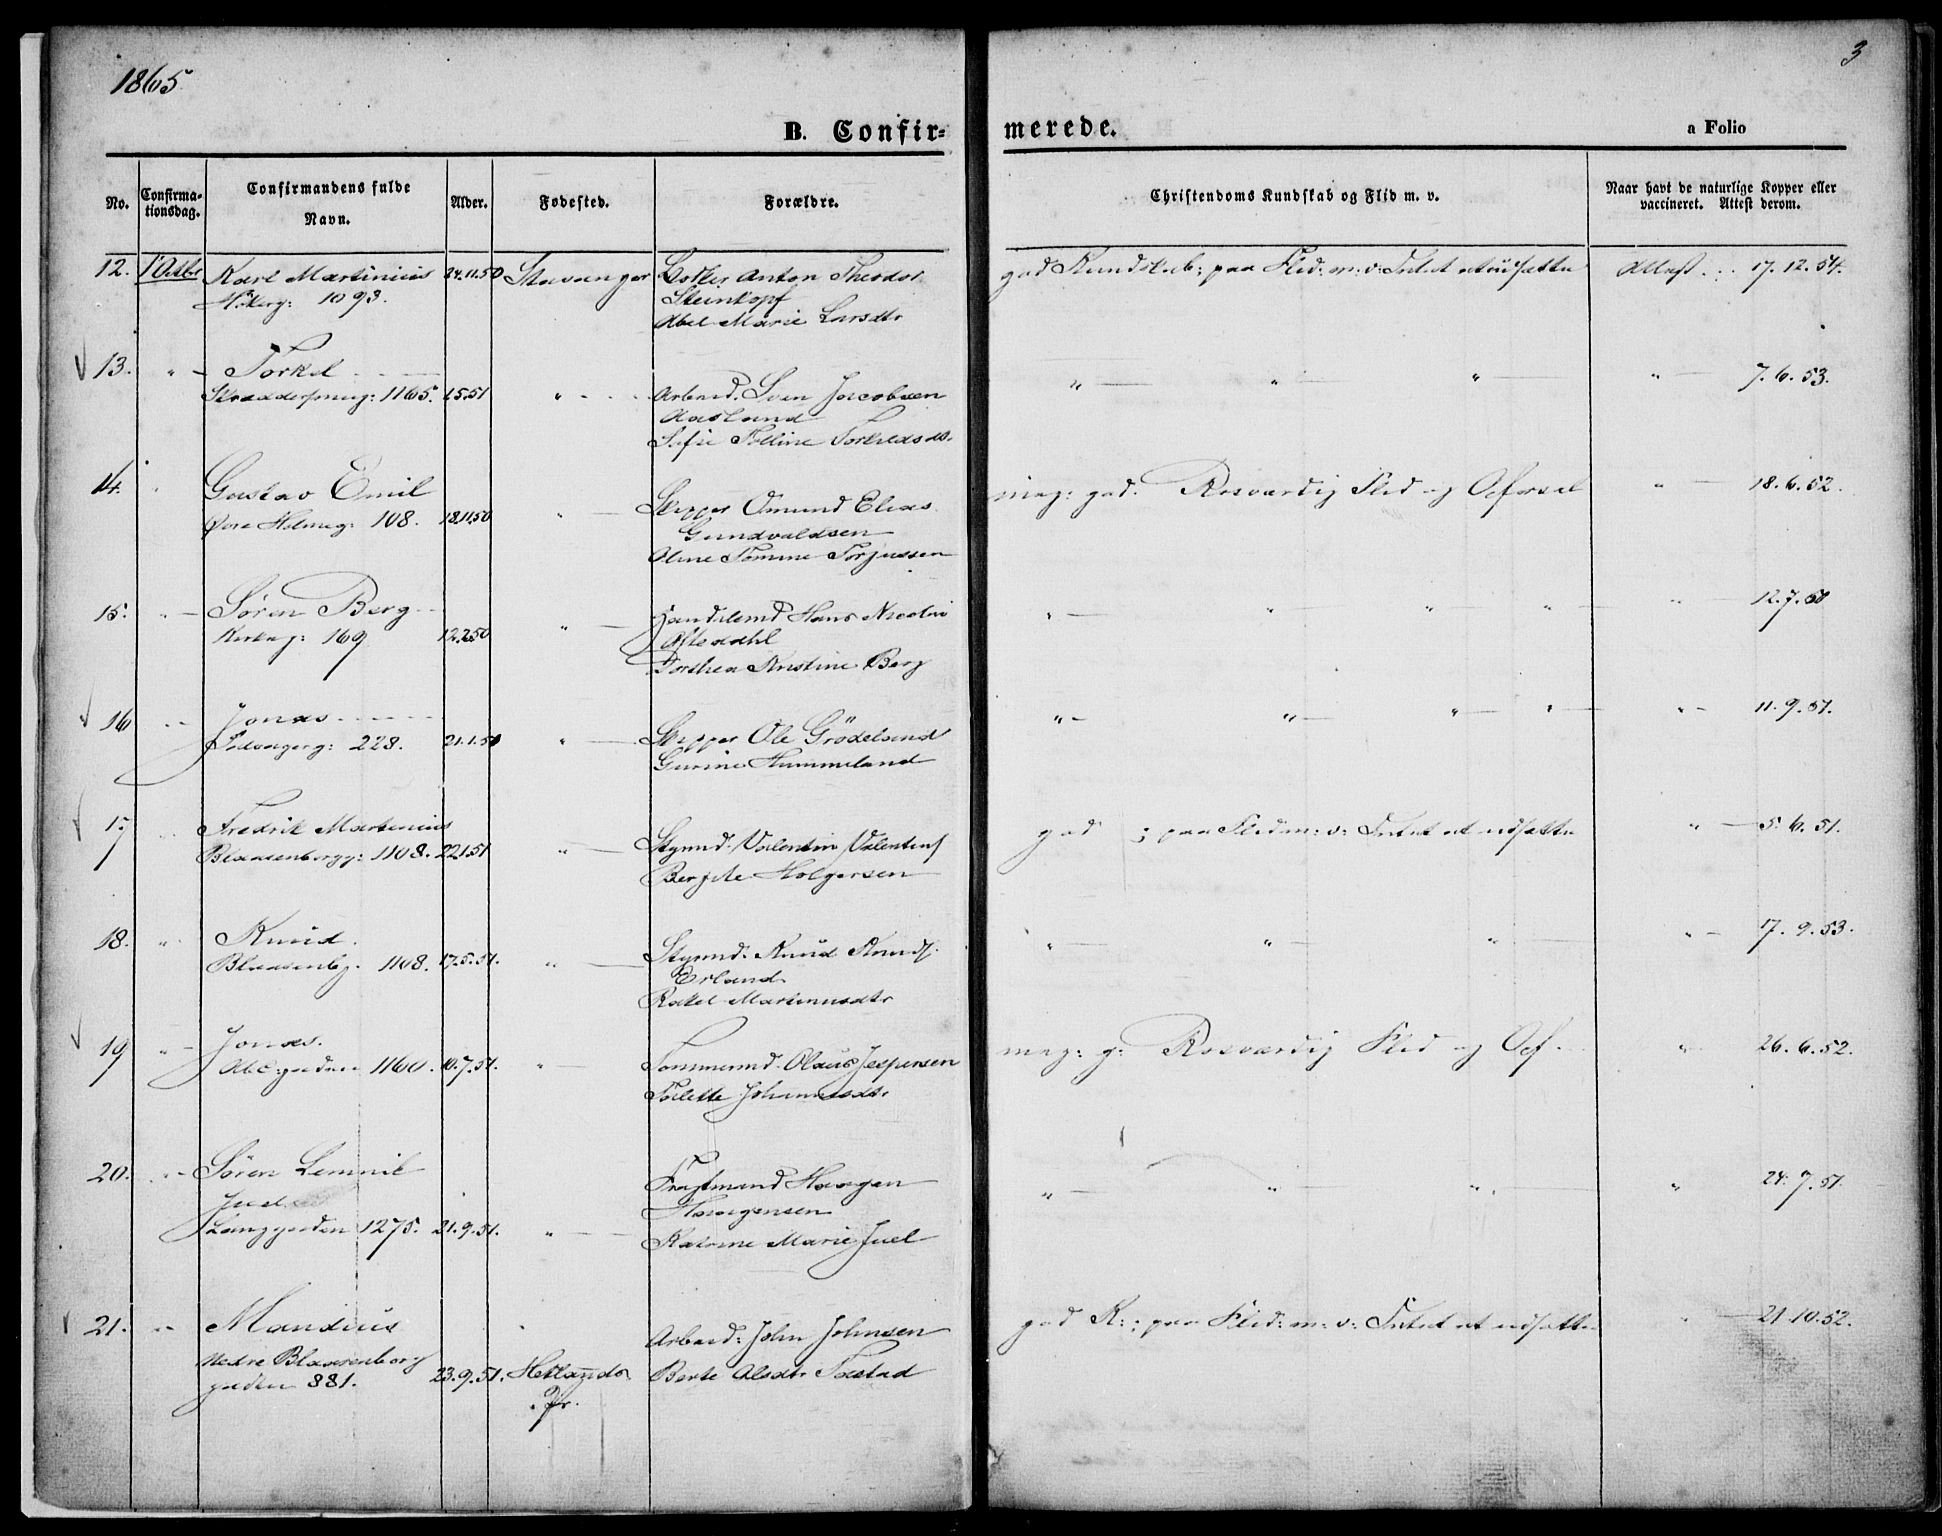 1865
3
B. Confir=
merede.
a Folio
No.
Confirma-
tionsdag.
Confirmandens fulde
Navn.
Alder.
Fødested.
Forældre.
Christendoms Kundskab og Flid m. v.
Naar havt de naturlige Kopper eller
vaccineret. Attest derom.
12. 1 Octbr Karl Martinius 24.11.50 Stavanger Anton Theodor god Kundskab; paa Flid: m: v: Intet at udsætte Attest 17.12.54.
1093. Steinkopf
Abel Marie Larsdtr
13. " Torkel " " " " 7.6.53.
1165. 1.5.51 " Arbeid. Sven Jacobsen
Aasland
Sofie Torkeldsdtr.
14. Gustav Emil meg: god. Rosværdig Flid og Opførsel " 18.6.52.
Øvre 108. 18.11.50 " Skipper Omund Elias
Gundvaldsen
Oline Tomine Torjussen
15. " Søren Berg " " " " " 12.7.50
169 12.2.50 " Handelsmd Hans Nicolai
Afledahl
Dorthea Kristine Berg
16 " Jonas " " " " " 11.9.51.
228. 21.1.51 " Skipper Ole Grødeland
Gurine Hummeland
17 Fredrik Martinius god ; paa Flid m: v: Intet at udsætte " 5.6.51.
Blaasenborgg: 1108. 22.1.51 " Styrmd. Valentin Valentins
Bergite Holgersen
18. " Knud. " " " " 17.9.53.
Blaasenbg. 1108. 17.5.51. " Styrmd. Knud Knuds.
Erland
Rakel Martinusdtr
19 " Jonas. meg: g: Rosværdig Flid og Opf. " 26.6.52.
1160. 10.7.51. " Tømmermd. Olaus Jespersen
Tolette Johannesdtr
20. " Søren Lemmik Fragtmand Haagen " " " " 24.7.51.
Juel Haagensen
Langgaden 1275. 21.9.51. " Katrine Marie Juel
21. " Mandius Arbeid: John Johnsen god K: ; paa Flid: m: v: Intet at udsætte 21.10.52.
Nedre Blaasenborg 23.9.51. Hetlands Berte Olsdtr
gaden 881. Pr.